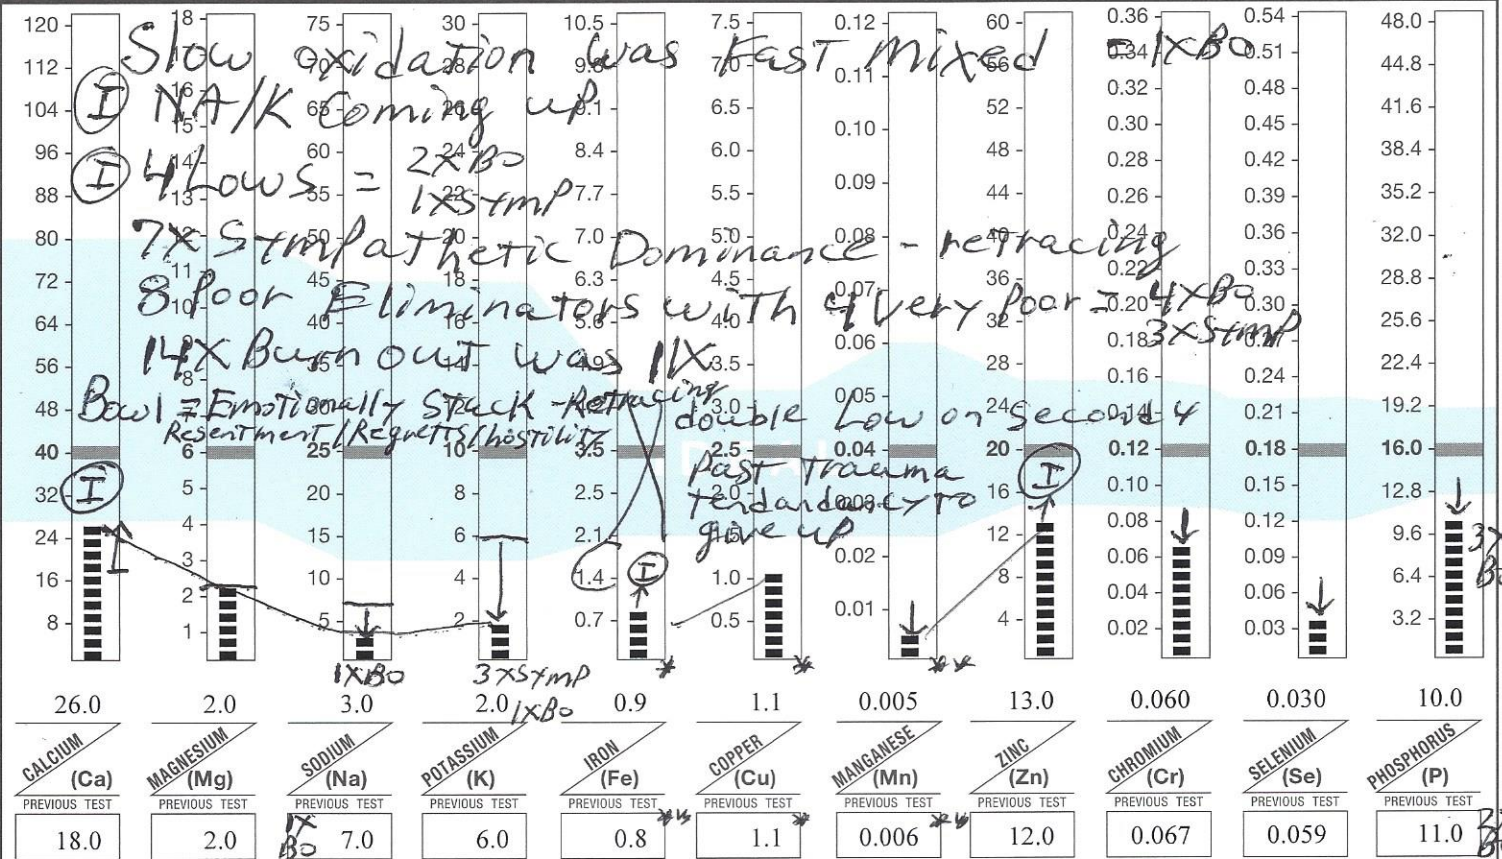 Slow oxidation was Fast mixed = 1XBO
I NA/K Coming up
I 4 Lows = 2XBO
1XSymp
7X Sympathetic Dominance - retracing
8 Poor Eliminators with 4 Very Poor = 4XBO
3XSymp
14X Burn out was 11X
Bowl = Emotionally Stuck - Retracing
Resentment/Regretts/hostility
double Low on Second 4
Past Trauma
tendandancy to
give up
I
I
I
120 112 104 96 88 80 72 64 56 48 40 32 24 16 8
18 16 15 14 13 12 11 10 9 8 6 5 4 3 2 1
75 70 65 60 50 45 40 30 25 20 15 10 5
30 28 26 24 22 20 18 16 14 10 8 6 4 2
10.5 9.8 9.1 8.4 7.7 7.0 6.3 5.6 4.9 3.5 2.5 2.1 1.4 0.7
7.5 7.0 6.5 6.0 5.5 5.0 4.5 4.0 3.5 3.0 2.5 2.0 1.5 1.0 0.5
0.12 0.11 0.10 0.09 0.08 0.07 0.06 0.05 0.04 0.03 0.02 0.01
60 56 52 48 44 40 36 32 28 24 20 16 12 8 4
0.36 0.34 0.32 0.30 0.28 0.26 0.24 0.22 0.20 0.18 0.16 0.14 0.12 0.10 0.08 0.06 0.04 0.02
0.54 0.51 0.48 0.45 0.42 0.39 0.36 0.33 0.30 0.24 0.21 0.18 0.15 0.12 0.09 0.06 0.03
48.0 44.8 41.6 38.4 35.2 32.0 28.8 25.6 22.4 19.2 16.0 12.8 9.6 6.4 3.2
3X
BO
1XBO 3XSymp
1XBO
26.0 2.0 3.0 2.0 0.9 1.1 0.005 13.0 0.060 0.030 10.0
CALCIUM MAGNESIUM SODIUM POTASSIUM IRON COPPER MANGANESE ZINC CHROMIUM SELENIUM PHOSPHORUS
(Ca) (Mg) (Na) (K) (Fe) (Cu) (Mn) (Zn) (Cr) (Se) (P)
PREVIOUS TEST PREVIOUS TEST PREVIOUS TEST PREVIOUS TEST PREVIOUS TEST PREVIOUS TEST PREVIOUS TEST PREVIOUS TEST PREVIOUS TEST PREVIOUS TEST PREVIOUS TEST
1X
BO
18.0 2.0 7.0 6.0 0.8 1.1 0.006 12.0 0.067 0.059 11.0